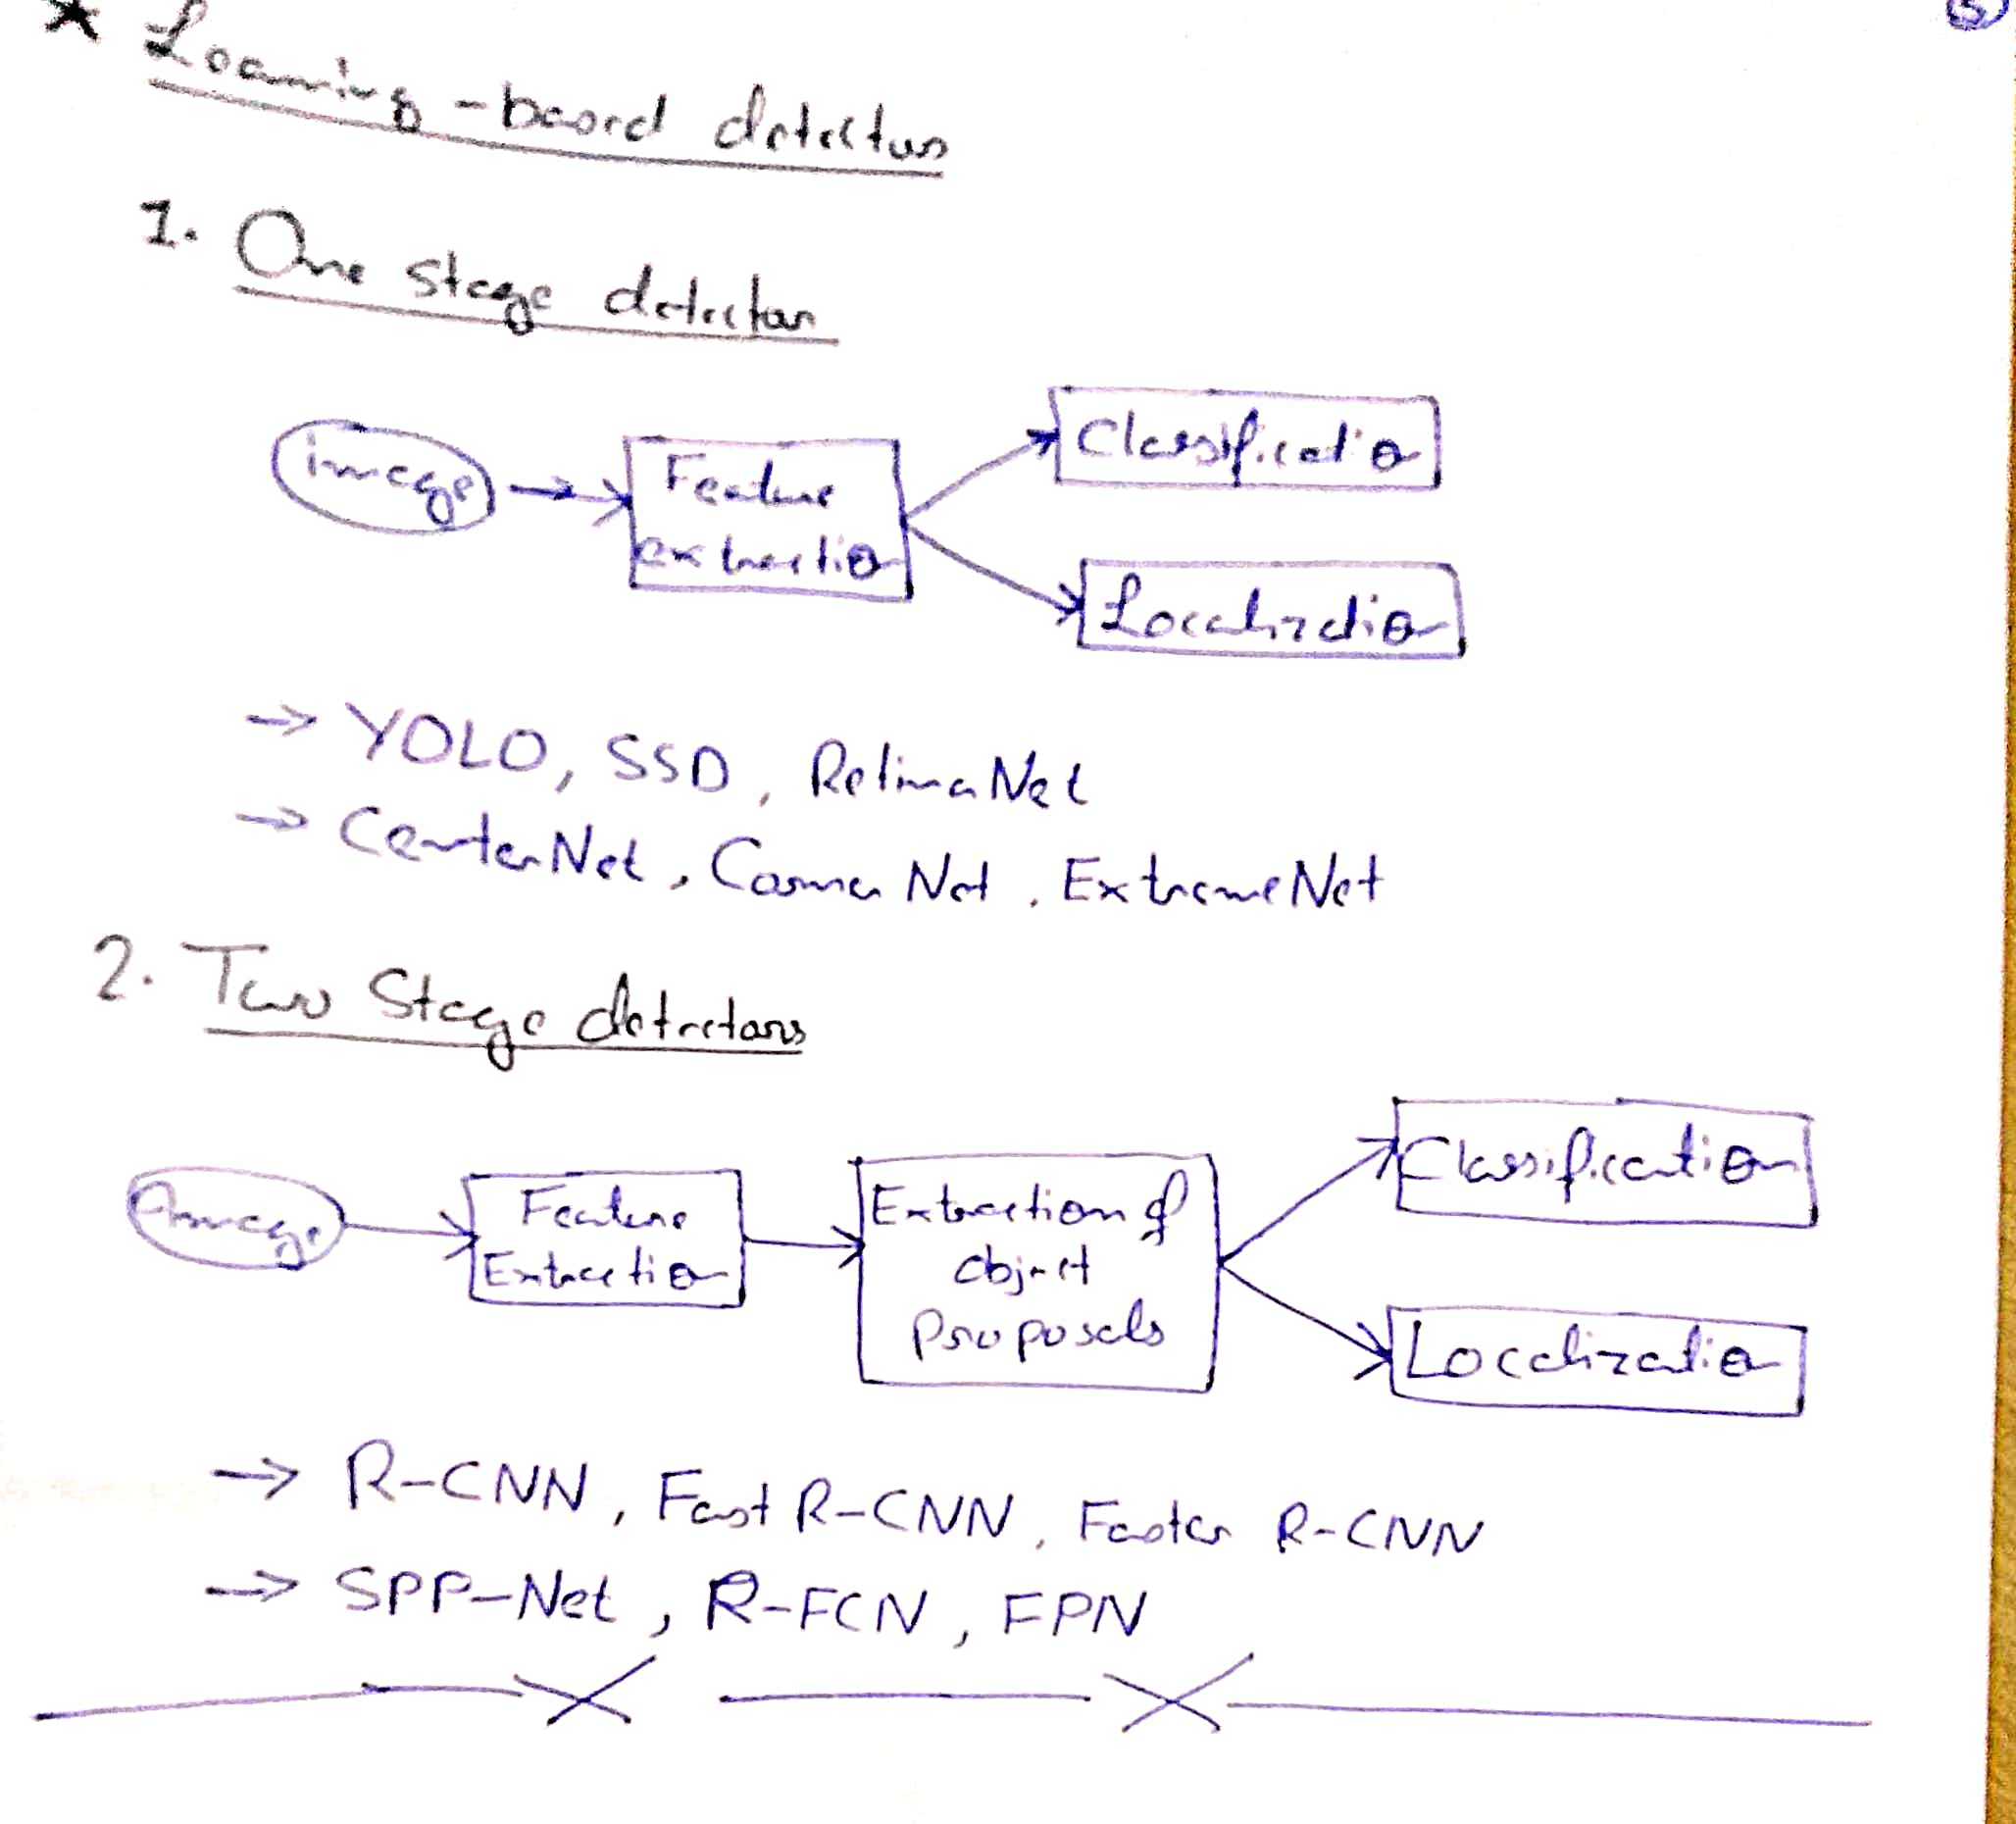 * Learning-based detectors
1. One stage detector
image
Feature
extraction
Classification
Localization
→ YOLO, SSD, RetinaNet
→ CenterNet, CornerNet, ExtremeNet
2. Two Stage detectors
Image
Feature
Extraction
Extraction of
object
proposals
Classification
Localization
→ R-CNN, Fast R-CNN, Faster R-CNN
→ SPP-Net, R-FCN, FPN